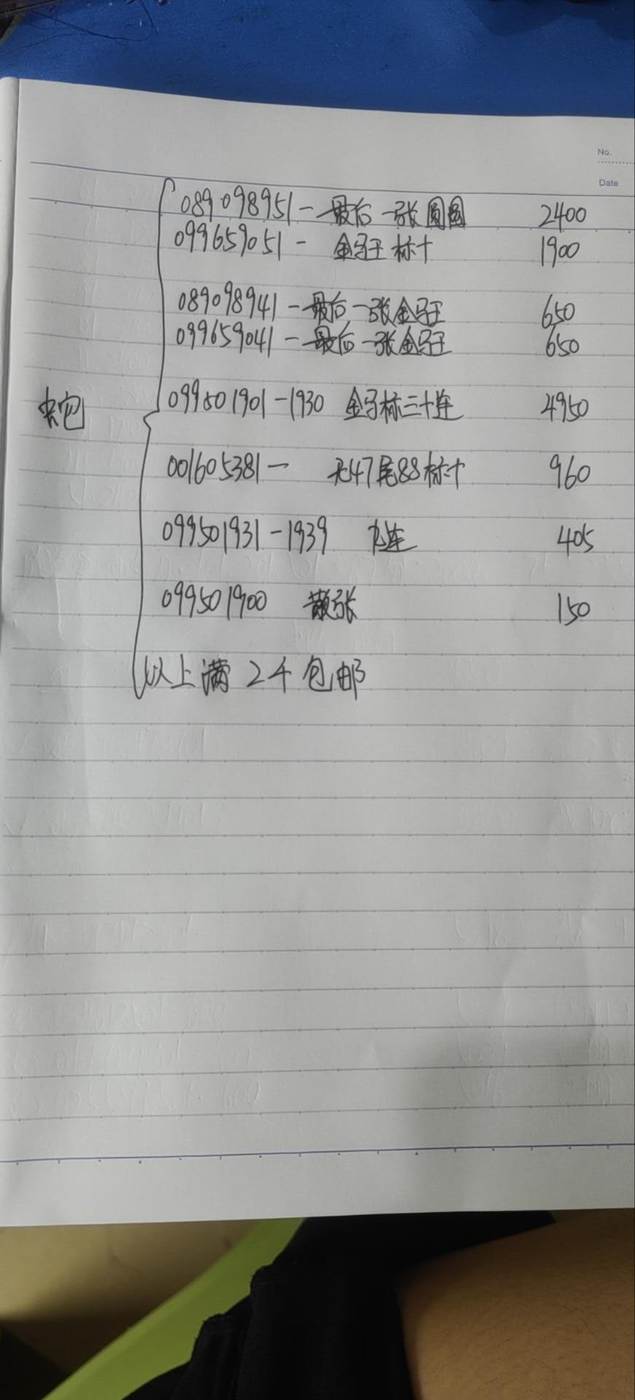 No.
Date
089098951-最后一张圆圆 2400
099659051- 金马王标十 1900
089098941-最后一张金马王 650
099659041-最后一张金马王 650
蛇
099501901-1930 金马标三十连 4950
001605381- 无47尾88标十 960
099501931-1939 九连 405
099501900 散张 150
以上满2千包邮